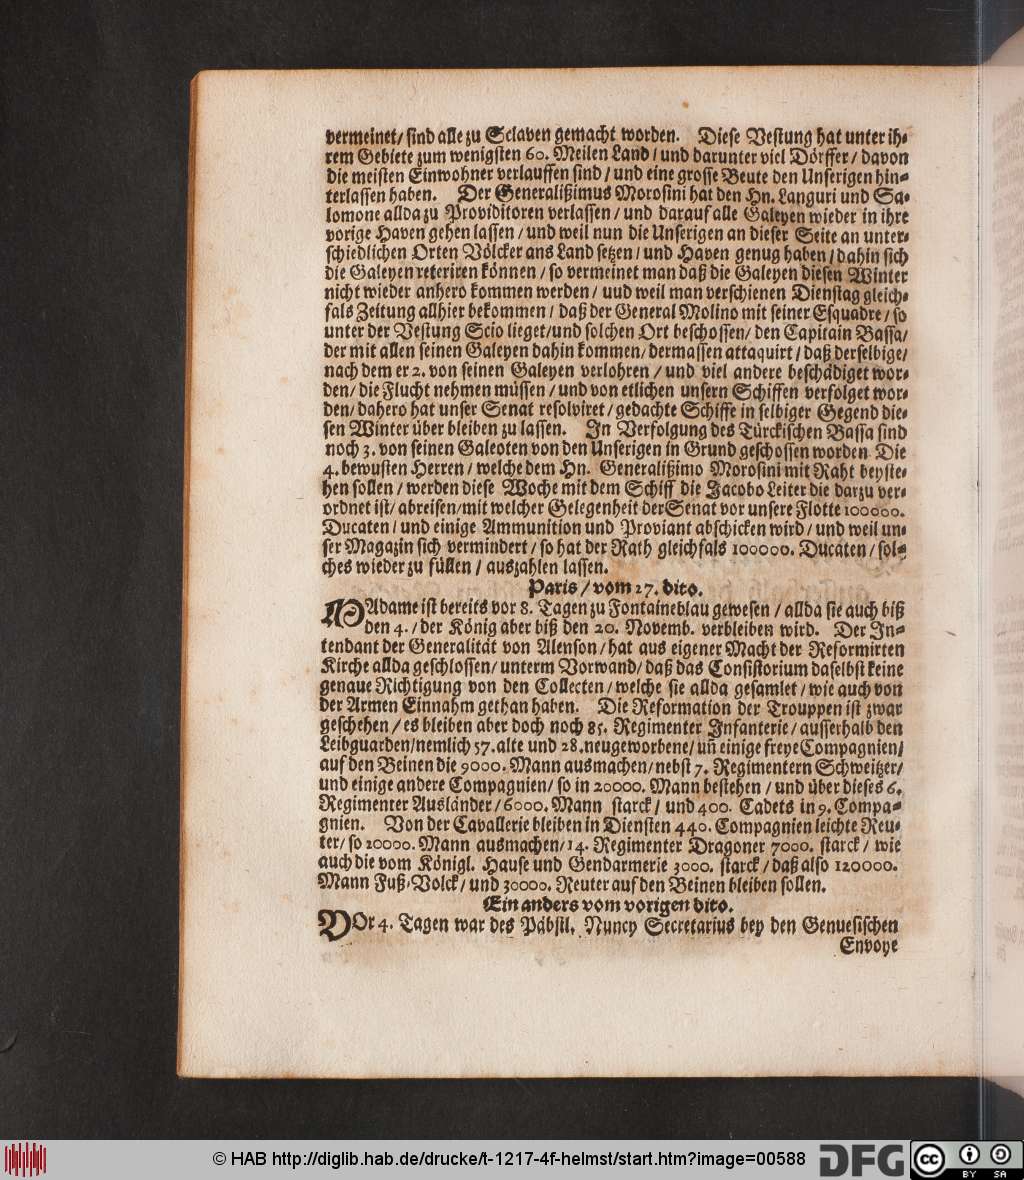 vermeinet/ sind alle zu Sclaven gemacht worden. Diese Vestung hat unter ih-
rem Gebiete zum wenigsten 60. Meilen Land/ und darunter viel Dörffer/ davon
die meisten Einwohner verlauffen sind/ und eine grosse Beute den Unserigen hin-
terlassen haben. Der Generalißimus Morosini hat den Hn. Languri und Sa-
lomone allda zu Providitoren verlassen/ und darauf alle Galeyen wieder in ihre
vorige Haven gehen lassen/ und weil nun die Unserigen an dieser Seite an unter-
schiedlichen Orten Völcker ans Land setzen/ und Haven genug haben/ dahin sich
die Galeyen reteriren können/ so vermeinet man daß die Galeyen diesen Winter
nicht wieder anhero kommen werden/ uud weil man verschienen Dienstag gleich-
fals Zeitung allhier bekommen/ daß der General Molino mit seiner Esquadre/ so
unter der Vestung Scio lieget/und solchen Ort beschossen/ den Capitain Bassa/
der mit allen seinen Galeyen dahin kommen/ dermassen attaquirt/ daß derselbige/
nach dem er 2. von seinen Galeyen verlohren/ und viel andere beschädiget wor-
den/ die Flucht nehmen müssen/ und von etlichen unsern Schiffen verfolget wor-
den/ dahero hat unser Senat resolviret/ gedachte Schiffe in selbiger Gegend die-
sen Winter über bleiben zu lassen. In Verfolgung des Türckischen Bassa sind
noch 3. von seinen Galeoten von den Unserigen in Grund geschossen worden Die
4. bewusten Herren/ welche dem Hn. Generalißimo Morosini mit Raht beyste-
hen sollen/ werden diese Woche mit dem Schiff die Jacobo Leiter die darzu ver-
ordnet ist/ abreisen/mit welcher Gelegenheit der Senat vor unsere Flotte 100000.
Ducaten/ und einige Ammunition und Proviant abschicken wird/ und weil un-
ser Magazin sich vermindert/ so hat der Rath gleichfals 100000. Ducaten/ sol-
ches wieder zu füllen/ auszahlen lassen.
Paris/ vom 27. dito.
MAdame ist bereits vor 8. Tagen zu Fontaineblau gewesen/ allda sie auch biß
den 4./ der König aber biß den 20. Novemb. verbleiben wird. Der In-
tendant der Generalität von Alenson/ hat aus eigener Macht der Reformirten
Kirche allda geschlossen/ unterm Vorwand/ daß das Consistorium daselbst keine
genaue Richtigung von den Collecten/ welche sie allda gesamlet/ wie auch von
der Armen Einnahm gethan haben. Die Reformation der Trouppen ist zwar
geschehen/ es bleiben aber doch noch 85. Regimenter Infanterie/ ausserhalb den
Leibguarden/nemlich 57. alte und 28. neugeworbene/ uñ einige freye Compagnien/
auf den Beinen die 9000. Mann ausmachen/ nebst 7. Regimentern Schweitzer/
und einige andere Compagnien/ so in 20000. Mann bestehen/ und über dieses 6.
Regimenter Ausländer/ 6000. Mann starck/ und 400. Cadets in 9. Compa-
gnien. Von der Cavallerie bleiben in Diensten 440. Compagnien leichte Reu-
ter/ so 20000. Mann ausmachen/ 14. Regimenter Dragoner 7000. starck/ wie
auch die vom Königl. Hause und Gendarmerie 3000. starck/ daß also 120000.
Mann Fuß-Volck/ und 30000. Reuter auf den Beinen bleiben sollen.
Ein anders vom vorigen dito.
VOr 4. Tagen war des Päbstl. Nuncy Secretarius bey den Genuesischen
Envoye
© HAB http://diglib.hab.de/drucke/t-1217-4f-helmst/start.htm?image=00588
DFG
cc BY SA